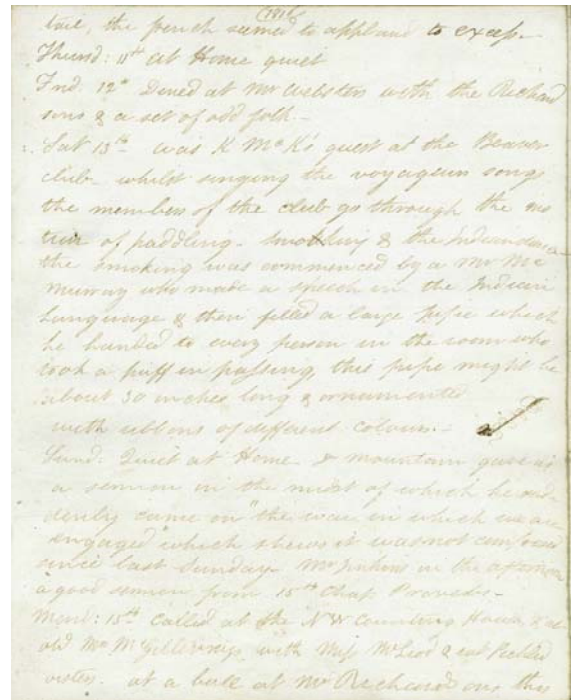 (1816)
tail, the french seemed to applaud to excess.
Thursd: 11th at Home quiet
Frid. 12th Dined at Mr Websters with the Richard
sons & a set of odd folk -
Sat 13th was K McK's guest at the Beaver
club - whilst singing the voyageurs songs
the members of the club go through the mo
tion of paddling. Smoking & the Indian dance
the smoking was commenced by a Mr Mc
Murray who made a speech in the Indian
Language & then filled a large pipe which
he handed to every person in the room who
took a puff in passing, this pipe might be
about 30 inches long & ornamented
with ribbons of different colours. -
Sund. Quiet at Home - Mountain gave us
a sermon in the midst of which he sud
denly came on "the war in which we are
engaged" which shews it was not composed
since last Sunday. Mr in the afternoon
a good sermon from 15th Chap Proverbs -
Mond: 15th Called at the NW Counting House &
old Mr McGillivrays with Miss McLeod & eat Pickled
at a ball at Mr Richardsons this